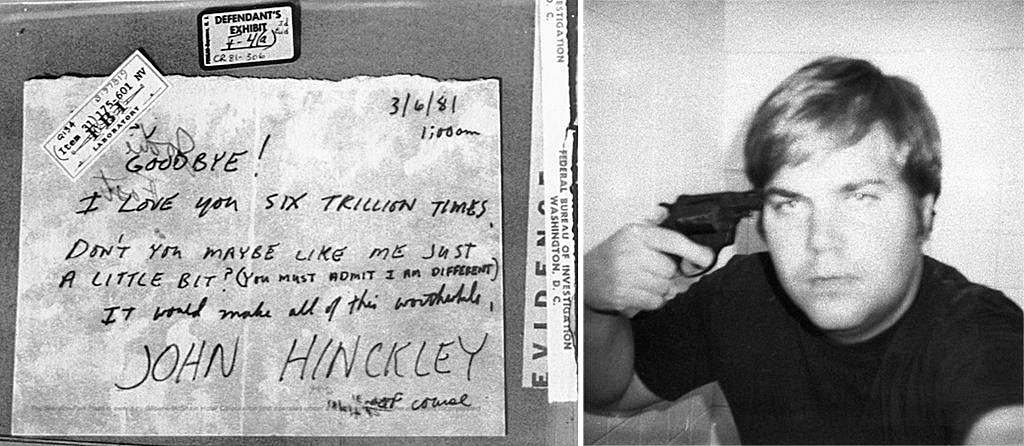 DEFENDANT'S
EXHIBIT
4-4(a)
CR 81-306
Q154
(Item 31) 175-601 NV
FBI
LABORATORY
3/6/81
1:00am
GOODBYE!
I LOVE YOU SIX TRILLION TIMES.
DON'T YOU MAYBE LIKE ME JUST
A LITTLE BIT? (YOU MUST ADMIT I AM DIFFERENT)
IT would make all of this worthwhile.
JOHN HINCKLEY
of course
EVIDENCE
FEDERAL BUREAU OF INVESTIGATION
WASHINGTON, D. C.
ESTIGATION
D. C.